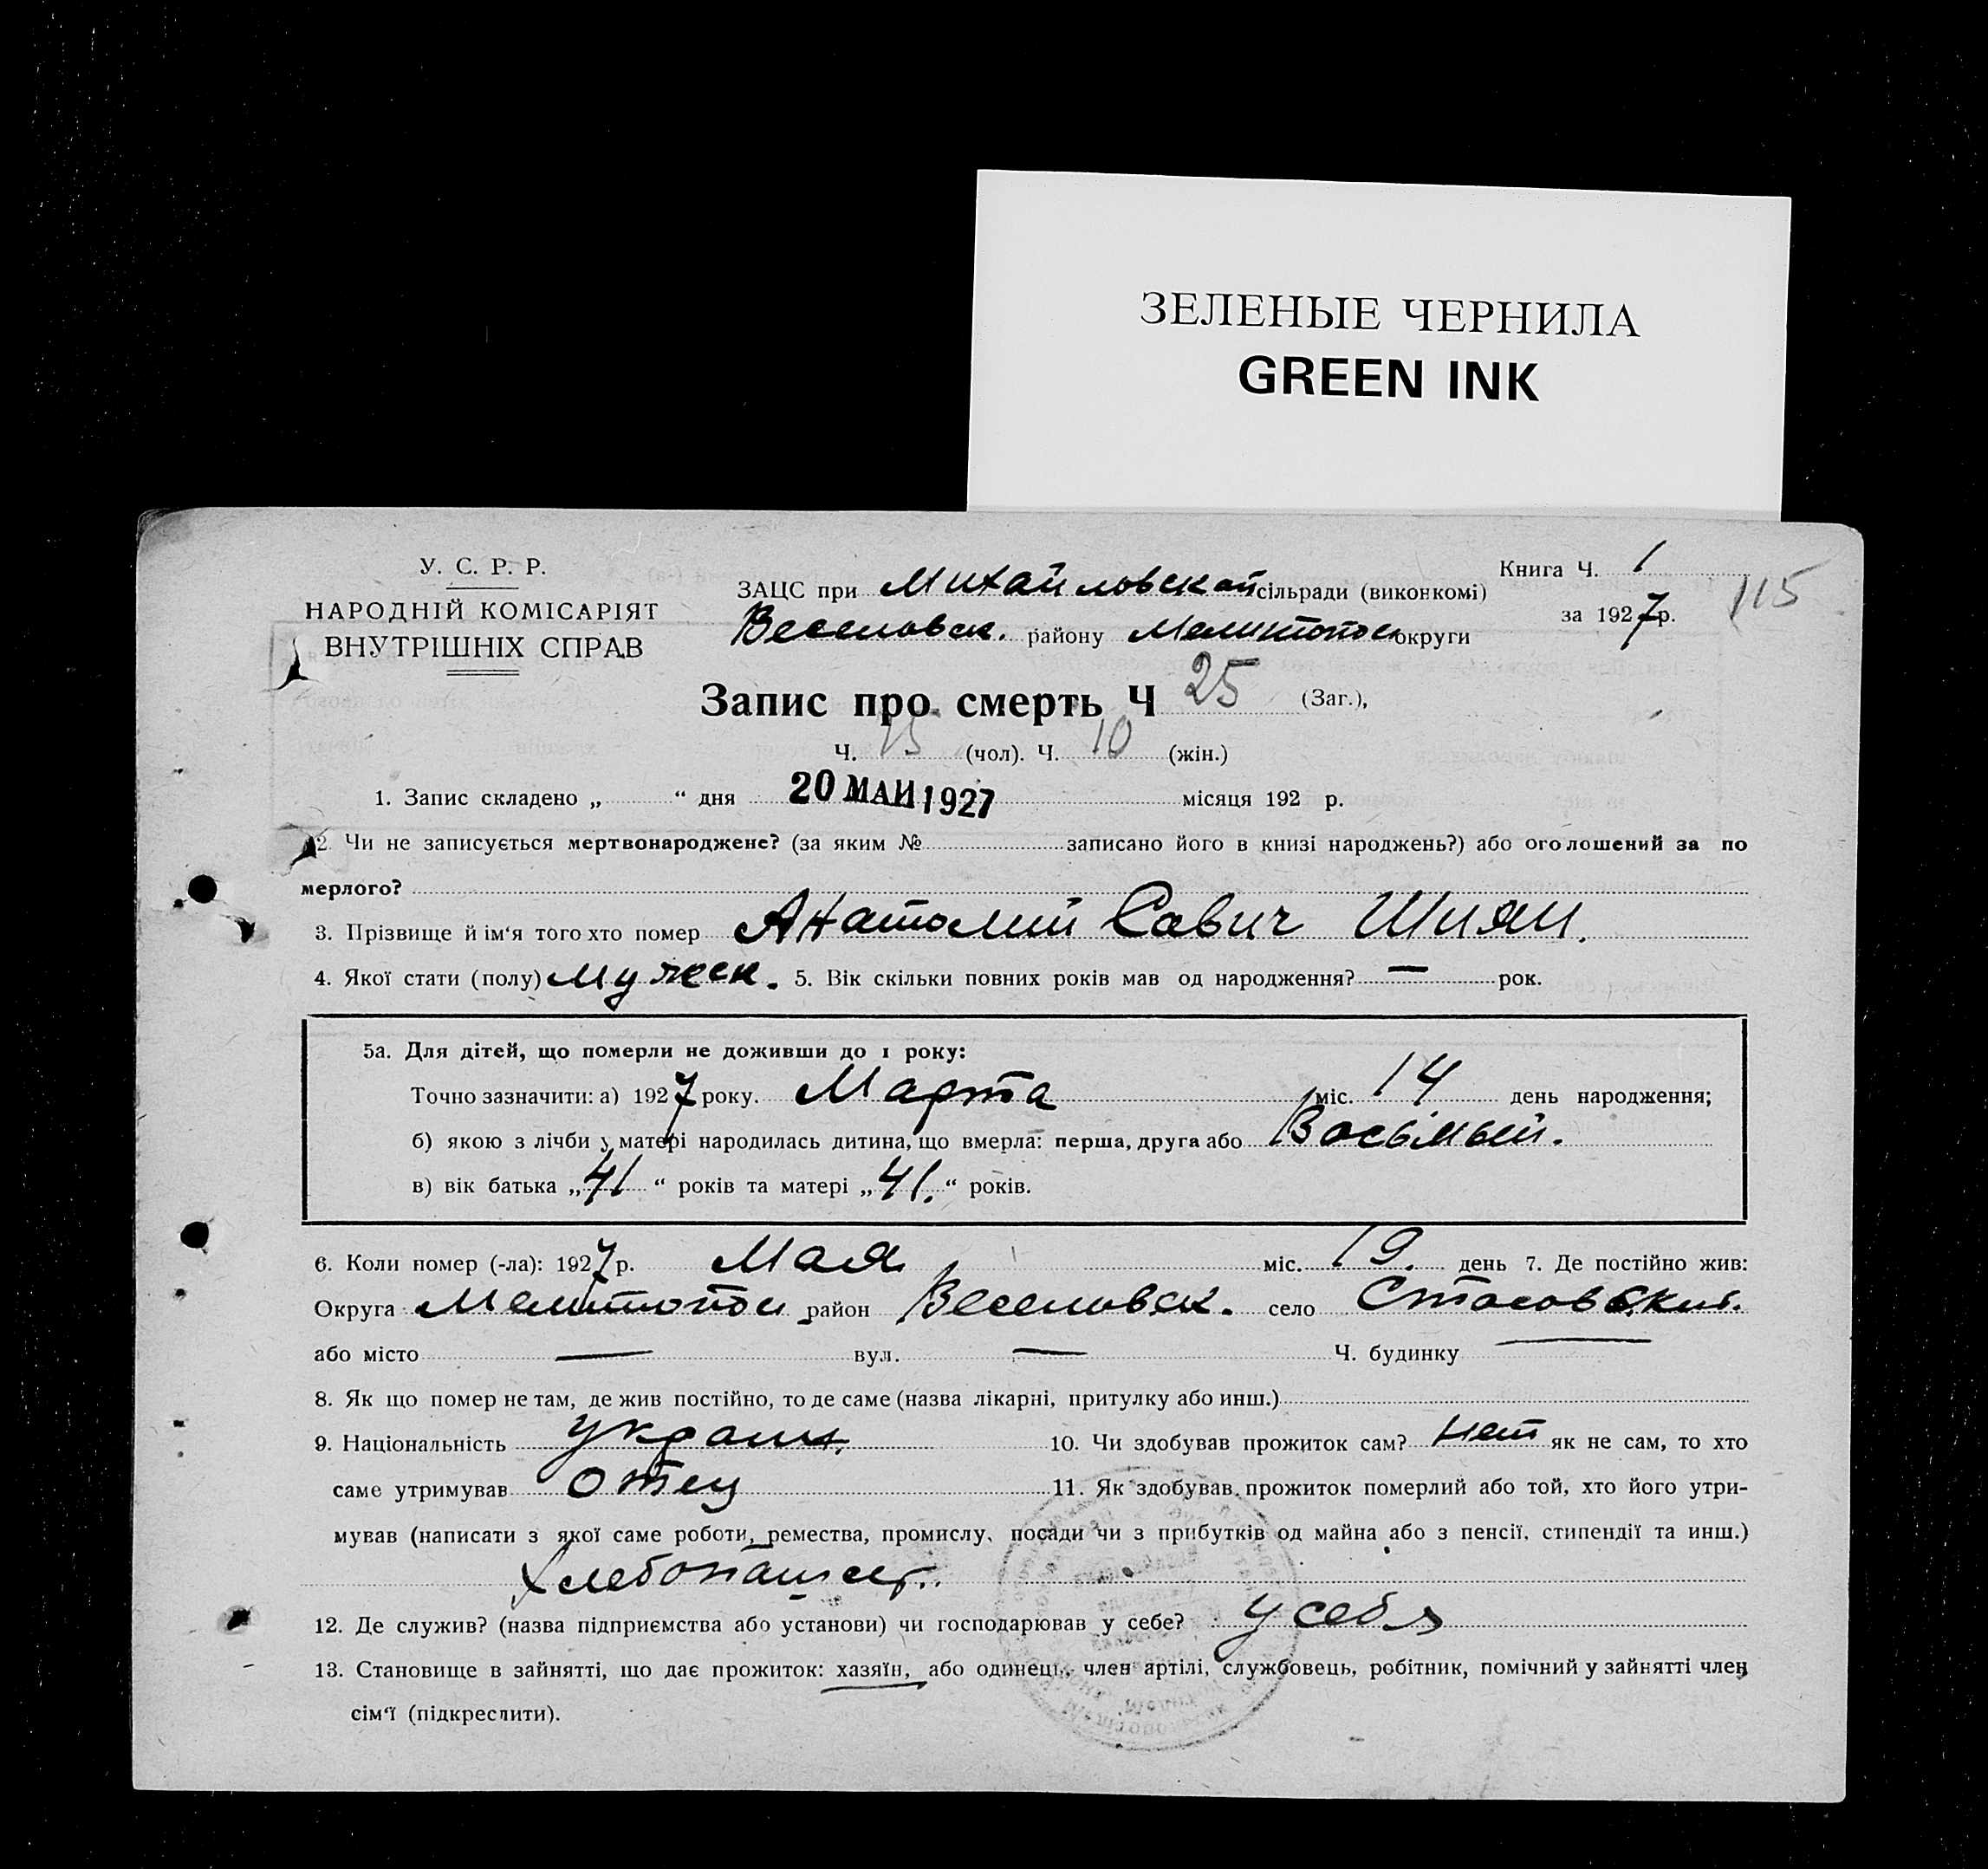 ЗЕЛЕНЫЕ ЧЕРНИЛА
GREEN INK
У. С. Р. Р.
НАРОДНІЙ КОМІСАРІЯТ
ВНУТРІШНІХ СПРАВ
ЗАЦС при Михайловской сільради (виконкомі)
Веселовск. району Мелитопос округи
Книга Ч. 1
за 1927 р.
115
Запис про смерть Ч 25 (Заг.),
Ч. 15 (чол). Ч. 10 (жін.)
1. Запис складено „ “ дня 20 МАИ 1927 місяця 192 р.
2. Чи не записується мертвонароджене? (за яким № записано його в книзі народжень?) або оголошений за по
мерлого?
3. Прізвище й ім‘я того хто помер Анатолий Савич Шиян.
4. Якої стати (полу) мужеск. 5. Вік скільки повних років мав од народження? — рок.
5а. Для дітей, що померли не доживши до 1 року:
Точно зазначити: а) 1927 року. Марта міс. 14 день народження;
б) якою з лічби у матері народилась дитина, що вмерла: перша, друга або Восьмый.
в) вік батька „41“ років та матері „41.“ років.
6. Коли помер (-ла): 1927 р. Мая міс. 19. день 7. Де постійно жив:
Округа Мелитопол район Веселовск. село
або місто — вул. — Ч. будинку —
8. Як що помер не там, де жив постійно, то де саме (назва лікарні, притулку або инш.)
9. Національність украин. 10. Чи здобував прожиток сам? нет як не сам, то хто
саме утримував отец 11. Як здобував прожиток померлий або той, хто його утри-
мував (написати з якої саме роботи, ремества, промислу, посади чи з прибутків од майна або з пенсії, стипендії та инш.)
Хлебопашец.
12. Де служив? (назва підприємства або установи) чи господарював у себе? у себя
13. Становище в зайнятті, що дає прожиток: хазяїн, або одинець, член артілі, службовець, робітник, помічний у зайнятті член
сім‘ї (підкреслити).